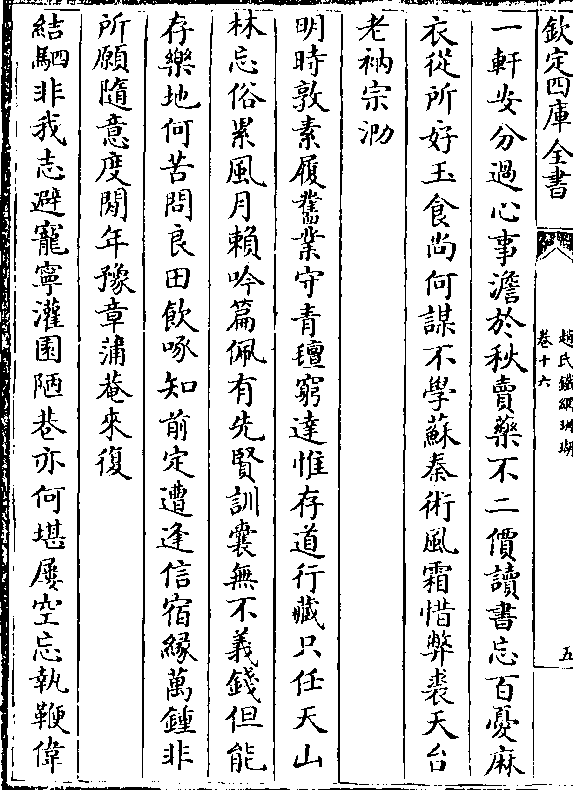 欽定四庫全書
趙氏鐵網珊瑚
卷十六
五
一軒安分過心事澹於秋賣藥不二價讀書忘百憂麻
衣從所好玉食尚何謀不學蘇秦術風霜惜弊裘天台
老衲宗泐
明時敦素履舊業守青氊窮達惟存道行藏只任天山
林忘俗累風月賴吟篇佩有先賢訓囊無不義錢但能
存樂地何苦問良田飲啄知前定遭逢信宿緣萬鍾非
所願隨意度閒年豫章蒲菴來復
結駟非我志避寵寧灌園陋巷亦何堪屢空忘執鞭偉